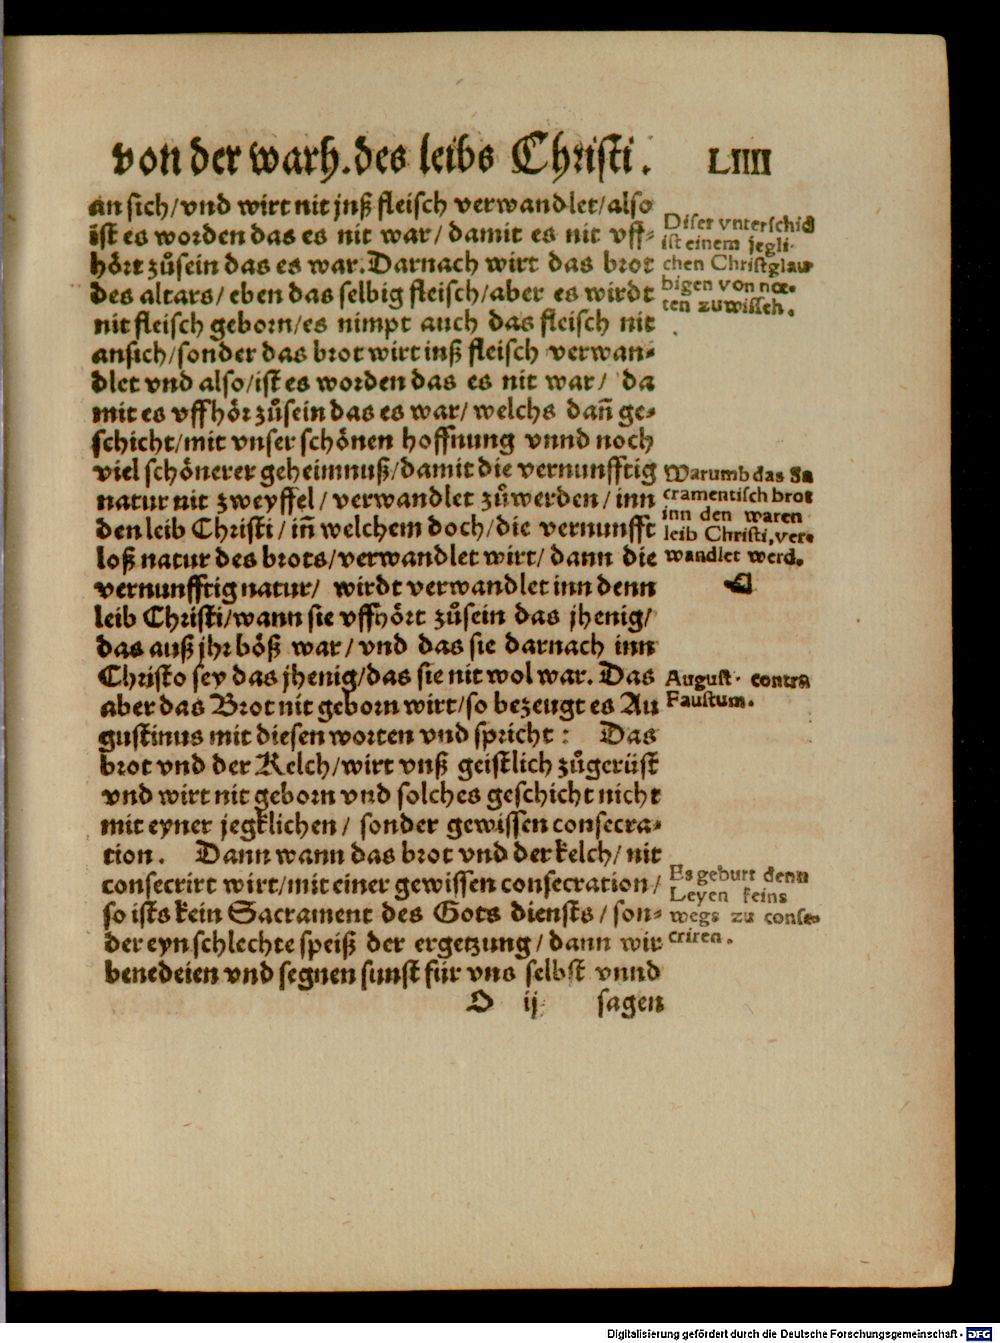 von der warh. des leibs Christi. LIIII
an sich/vnd wirt nit jnß fleisch verwandlet/also
ist es worden das es nit war/ damit es nit vff-
hört zůsein das es war. Darnach wirt das brot
des altars/ eben das selbig fleisch/aber es wirdt
nit fleisch geborn/es nimpt auch das fleisch nit
ansich/sonder das brot wirt inß fleisch verwan-
dlet vnd also/ist es worden das es nit war/ da
mit es vffhör zůsein das es war/ welchs dañ ge-
schicht/mit vnser schönen hoffnung vnnd noch
viel schönerer geheimnuß/damit die vernunfftig
natur nit zweyffel/ verwandlet zůwerden/ inn
den leib Christi/ iñ welchem doch/die vernunfft
loß natur des brots/verwandlet wirt/ dann die
vernunfftig natur/ wirdt verwandlet inn denn
leib Christi/wann sie vffhört zůsein das jhenig/
das auß jhr böß war/ vnd das sie darnach inn
Christo sey das jhenig/das sie nit wol war. Das
aber das Brot nit geborn wirt/so bezeugt es Au
gustinus mit diesen worten vnd spricht: Das
brot vnd der Kelch/wirt vnß geistlich zůgerüst
vnd wirt nit geborn vnd solches geschicht nicht
mit eyner jegklichen/ sonder gewissen consecra-
tion. Dann wann das brot vnd der kelch/ nit
consecrirt wirt/mit einer gewissen consecration/
so ists kein Sacrament des Gots diensts/ son-
der eyn schlechte speiß der ergetzung/ dann wir
benedeien vnd segnen sunst für vns selbst vnnd
O ij sagen
Diser vnterschid
ist einem jegli-
chen Christglau
bigen von nö-
ten zuwissen.
Warumb das Sa
cramentisch brot
inn den waren
leib Christi, ver-
wandlet werd.
August. contra
Faustum.
Es geburt denn
Leyen keins
wegs zu conse-
criren.
Digitalisierung gefördert durch die Deutsche Forschungsgemeinschaft - DFG